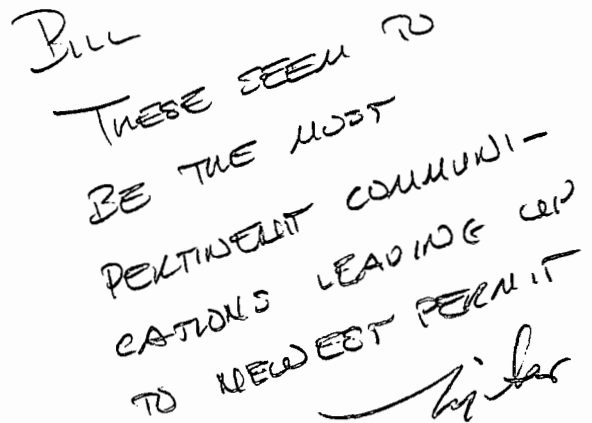 BILL
THESE SEEM TO
BE THE MOST
PERTINENT COMMUNI-
CATIONS LEADING UP
TO NEWEST PERMIT